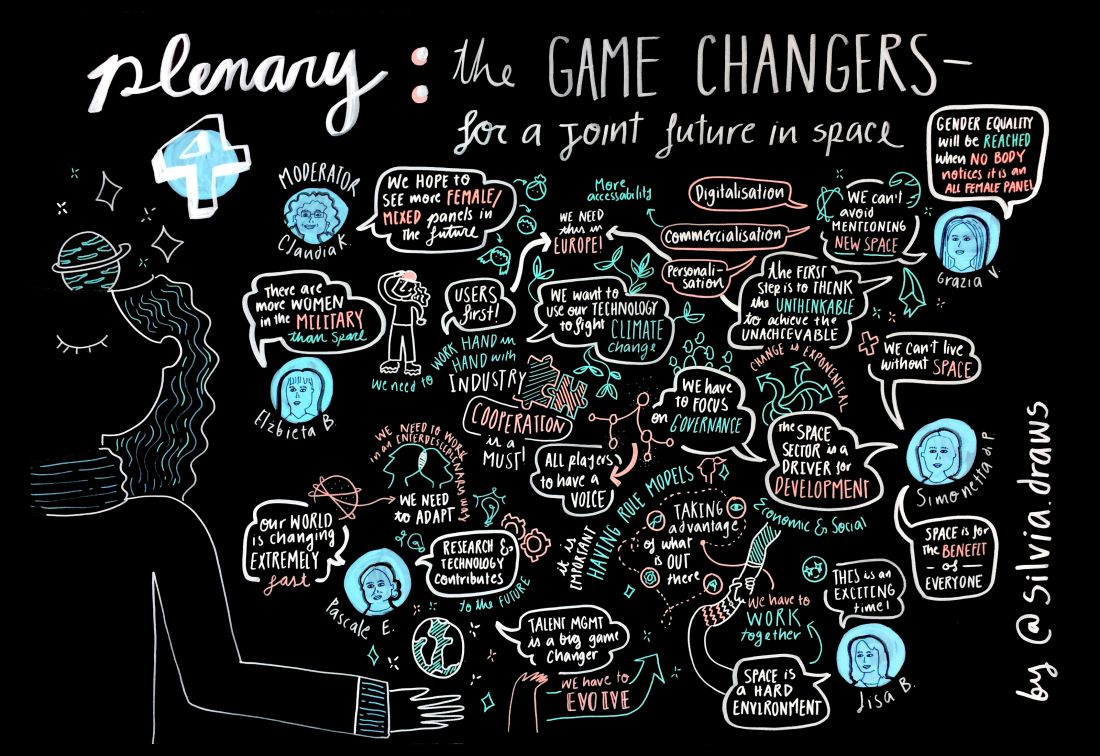 plenary : the GAME CHANGERS—
for a joint future in space
4
MODERATOR
Claudia K.
WE HOPE to
SEE more FEMALE/
MIXED panels in
the future
More
accessability
WE NEED
this in
EUROPE!
Digitalisation
Commercialisation
Personali-
sation
WE CAN'T
avoid
MENTIONING
NEW SPACE
GENDER EQUALITY
will be REACHED
when NO BODY
notices it is an
ALL FEMALE PANEL
Grazia V.
There are
more WOMEN
in the MILITARY
than space
Elzbieta B.
USERS
first!
WE WANT to
use our TECHNOLOGY
to fight CLIMATE
change
the FIRST
step is to THINK
the UNTHINKABLE
to achieve the
UNACHIEVABLE
we need to WORK HAND in
HAND with
INDUSTRY
COOPERATION
is a
MUST!
WE HAVE
to FOCUS
on GOVERNANCE
CHANGE is EXPONENTIAL
WE CAN'T live
without SPACE
the SPACE
SECTOR is a
DRIVER for
DEVELOPMENT
Economic & Social
Simonetta di P.
SPACE is for
the BENEFIT
- of -
EVERYONE
WE NEED TO WORK
in an INTERDISCIPLINARY WAY
WE NEED
to ADAPT
ALL players
to have a
VOICE
OUR WORLD
is changing
EXTREMELY
fast
Pascale E.
RESEARCH &
TECHNOLOGY
contributes
to the FUTURE
it is
IMPORTANT
HAVING ROLE MODELS
TAKING
advantage
of what
is OUT
there
we have to
WORK
together
THIS is an
EXCITING
time!
Lisa B.
SPACE is
a HARD
ENVIRONMENT
TALENT MGMT
is a big game
changer
WE have to
EVOLVE
by @silvia.draws